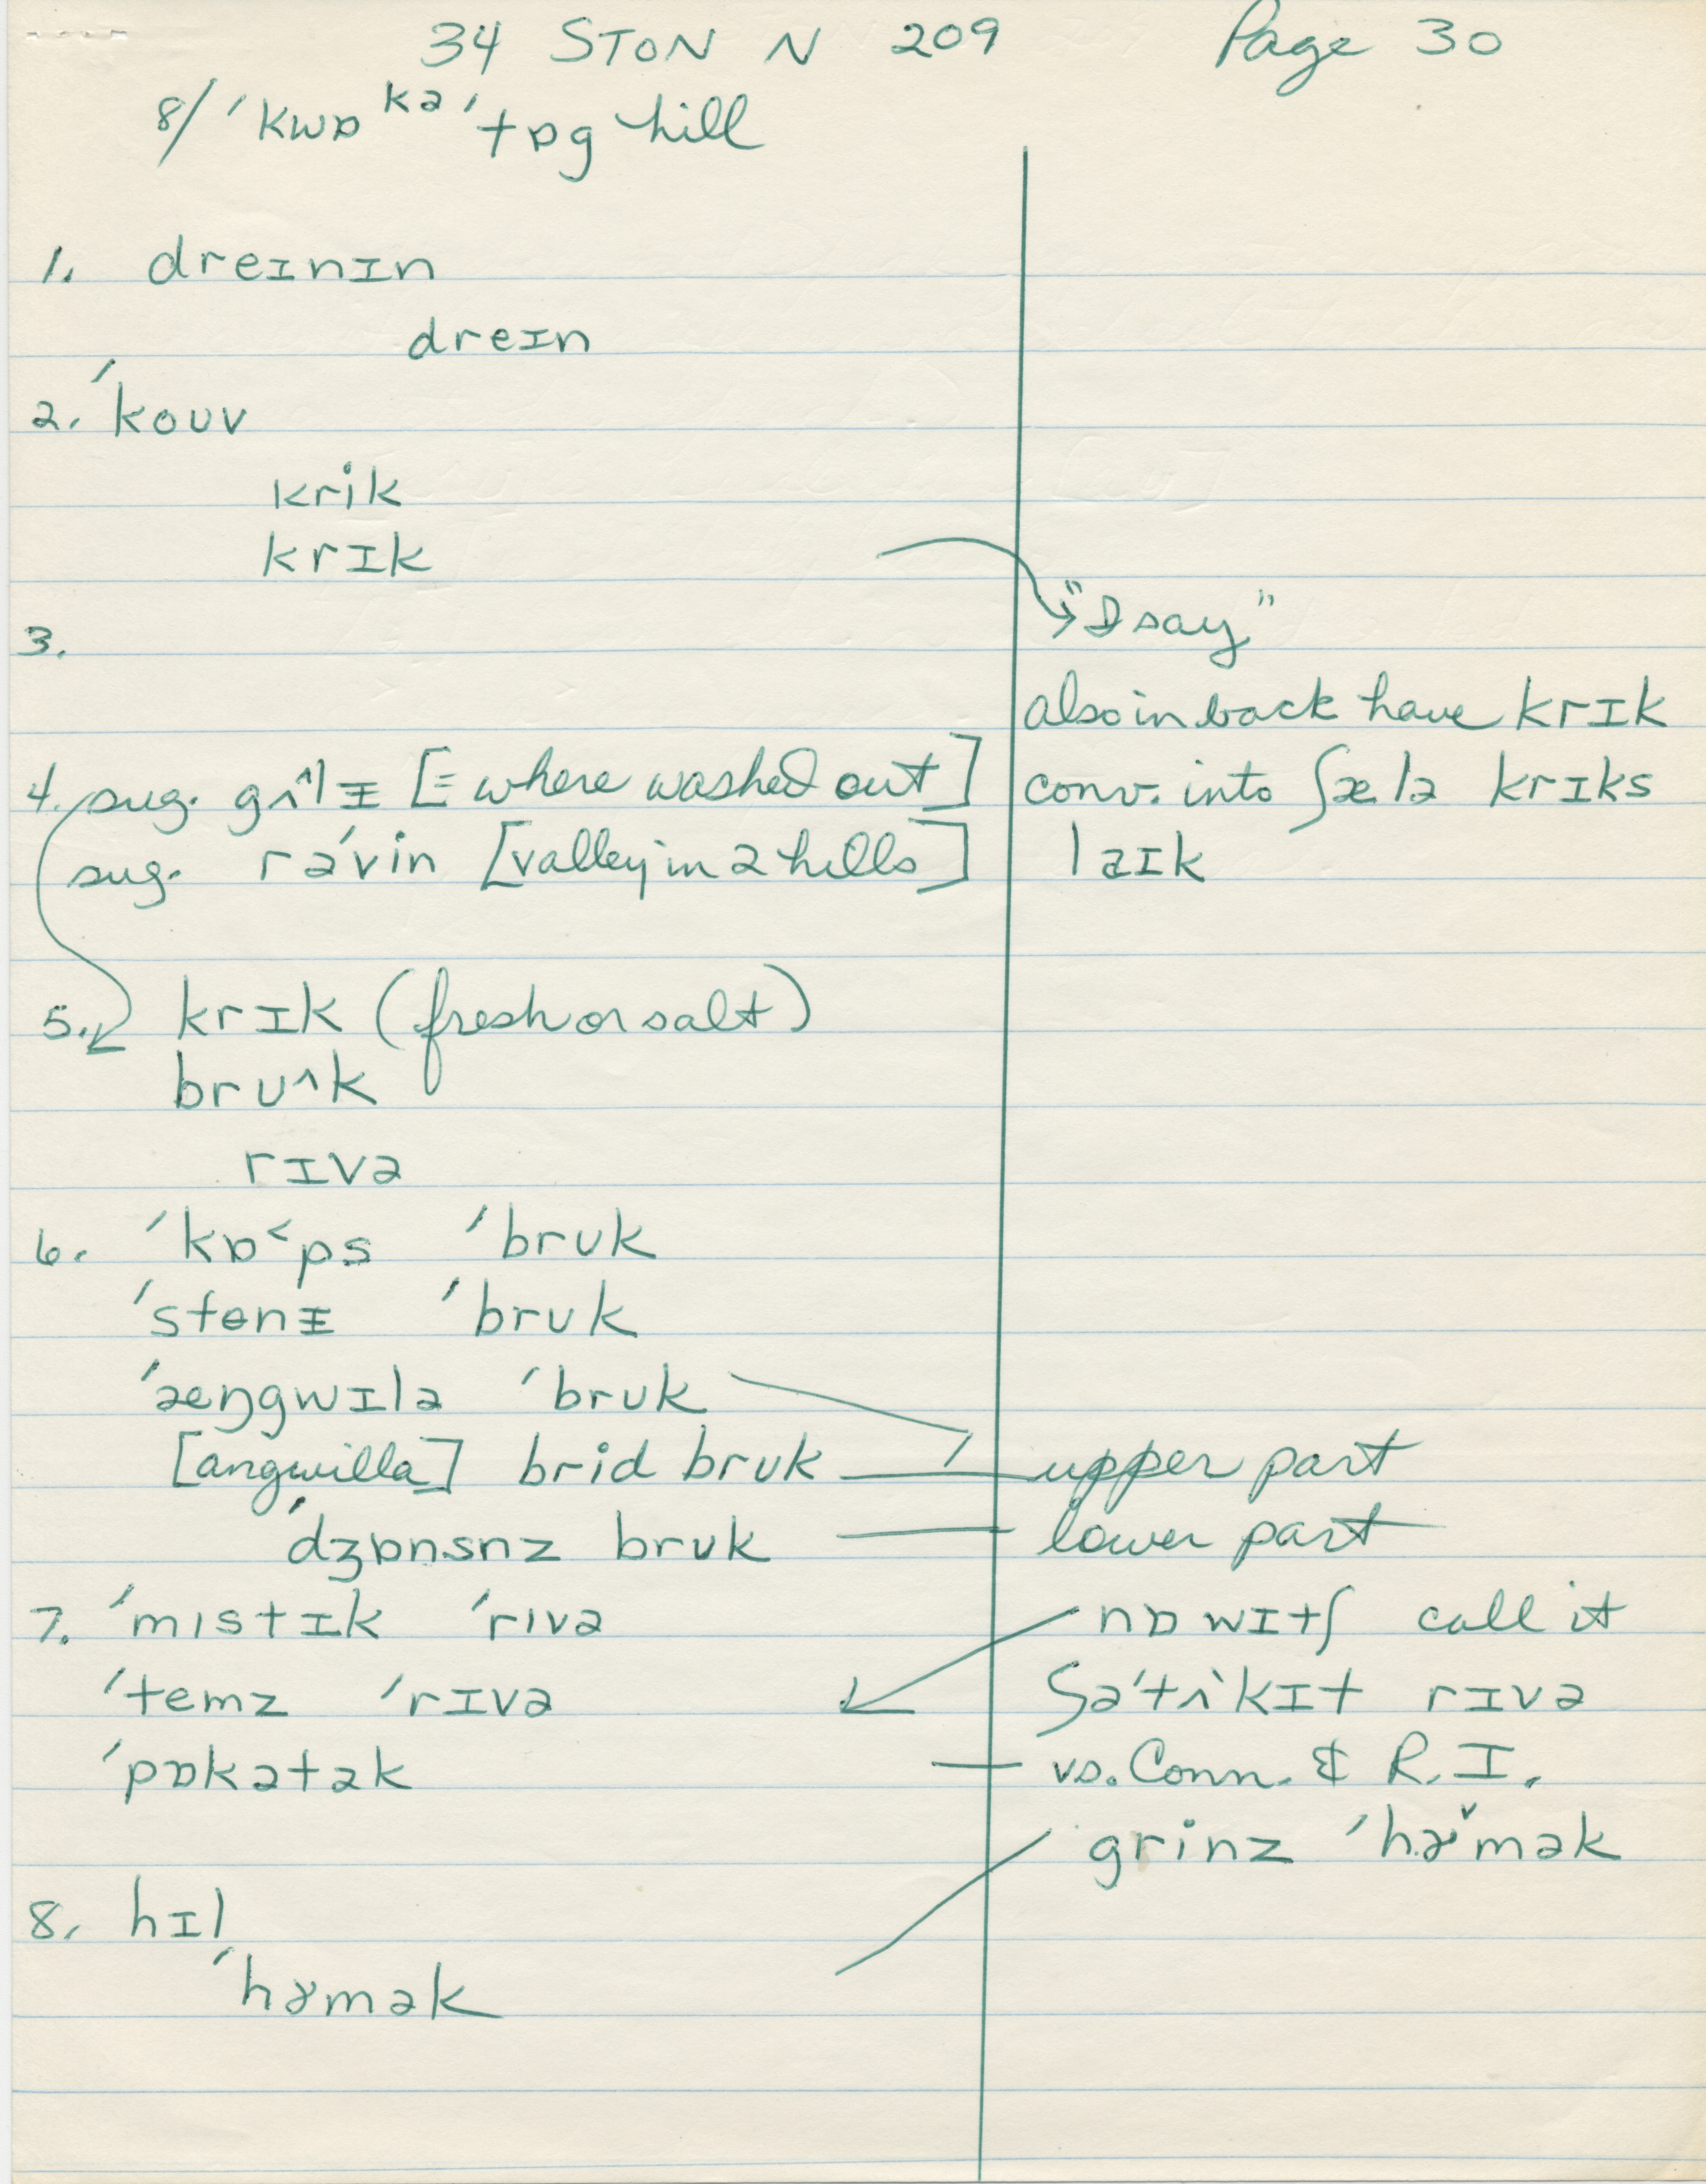 34 STON N 209 Page 30
8/ ˈkwɒkəˈtɒg hill
1. dreɪnɪn
dreɪn
2. ˈkouv
krik
krɪk
"I say"
3.
also in back have krɪk
4. sug. gʌ^lɪ [= where washed out]
conv. into ʃælə krɪks
sug. rəˈvin [valley in 2 hills]
laɪk
5. krɪk (fresh or salt)
brʊ^k
rɪvə
6. ˈkɒ<ps ˈbrʊk
ˈstɵnɪ ˈbrʊk
ˈæŋgwɪlə ˈbrʊk
[angwilla] brid brʊk upper part
ˈdʒɒnsnz brʊk lower part
7. ˈmɪstɪk ˈrɪvə nɒwɪtʃ call it
ˈtemz ˈrɪvə ʃəˈtʌkɪt rɪvə
ˈpɒkətək vs. Conn. & R.I.
grinz ˈhɤ˅mək
8. hɪl
ˈhɤmək